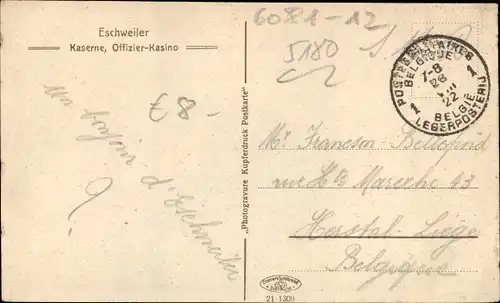 Eschweiler
Kaserne, Offizier-Kasino
6081-12
5180
€8-
un bonjour
d'Eschweiler
"Photogravure Kupferdruck Postkarte"
POSTES MILITAIRES
BELGIQUE
7-8
26
VIII
22
1 1
BELGIË
LEGERPOSTERIJ
Mr. Francson
rue Hte Maréxhe 43
Herstal-Liège
Belgique
21 1309